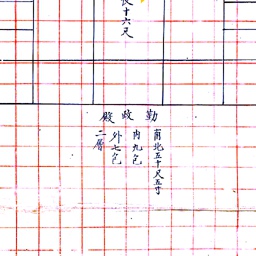 長十六尺
勤政殿
南北五十尺五寸
內九包
外七包
二層